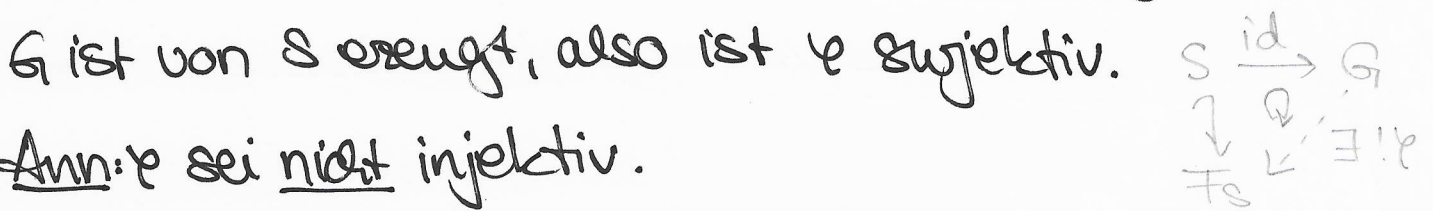 G ist von S erzeugt, also ist φ surjektiv.
Ann: φ sei nicht injektiv.
S id G
∃! φ
F_S